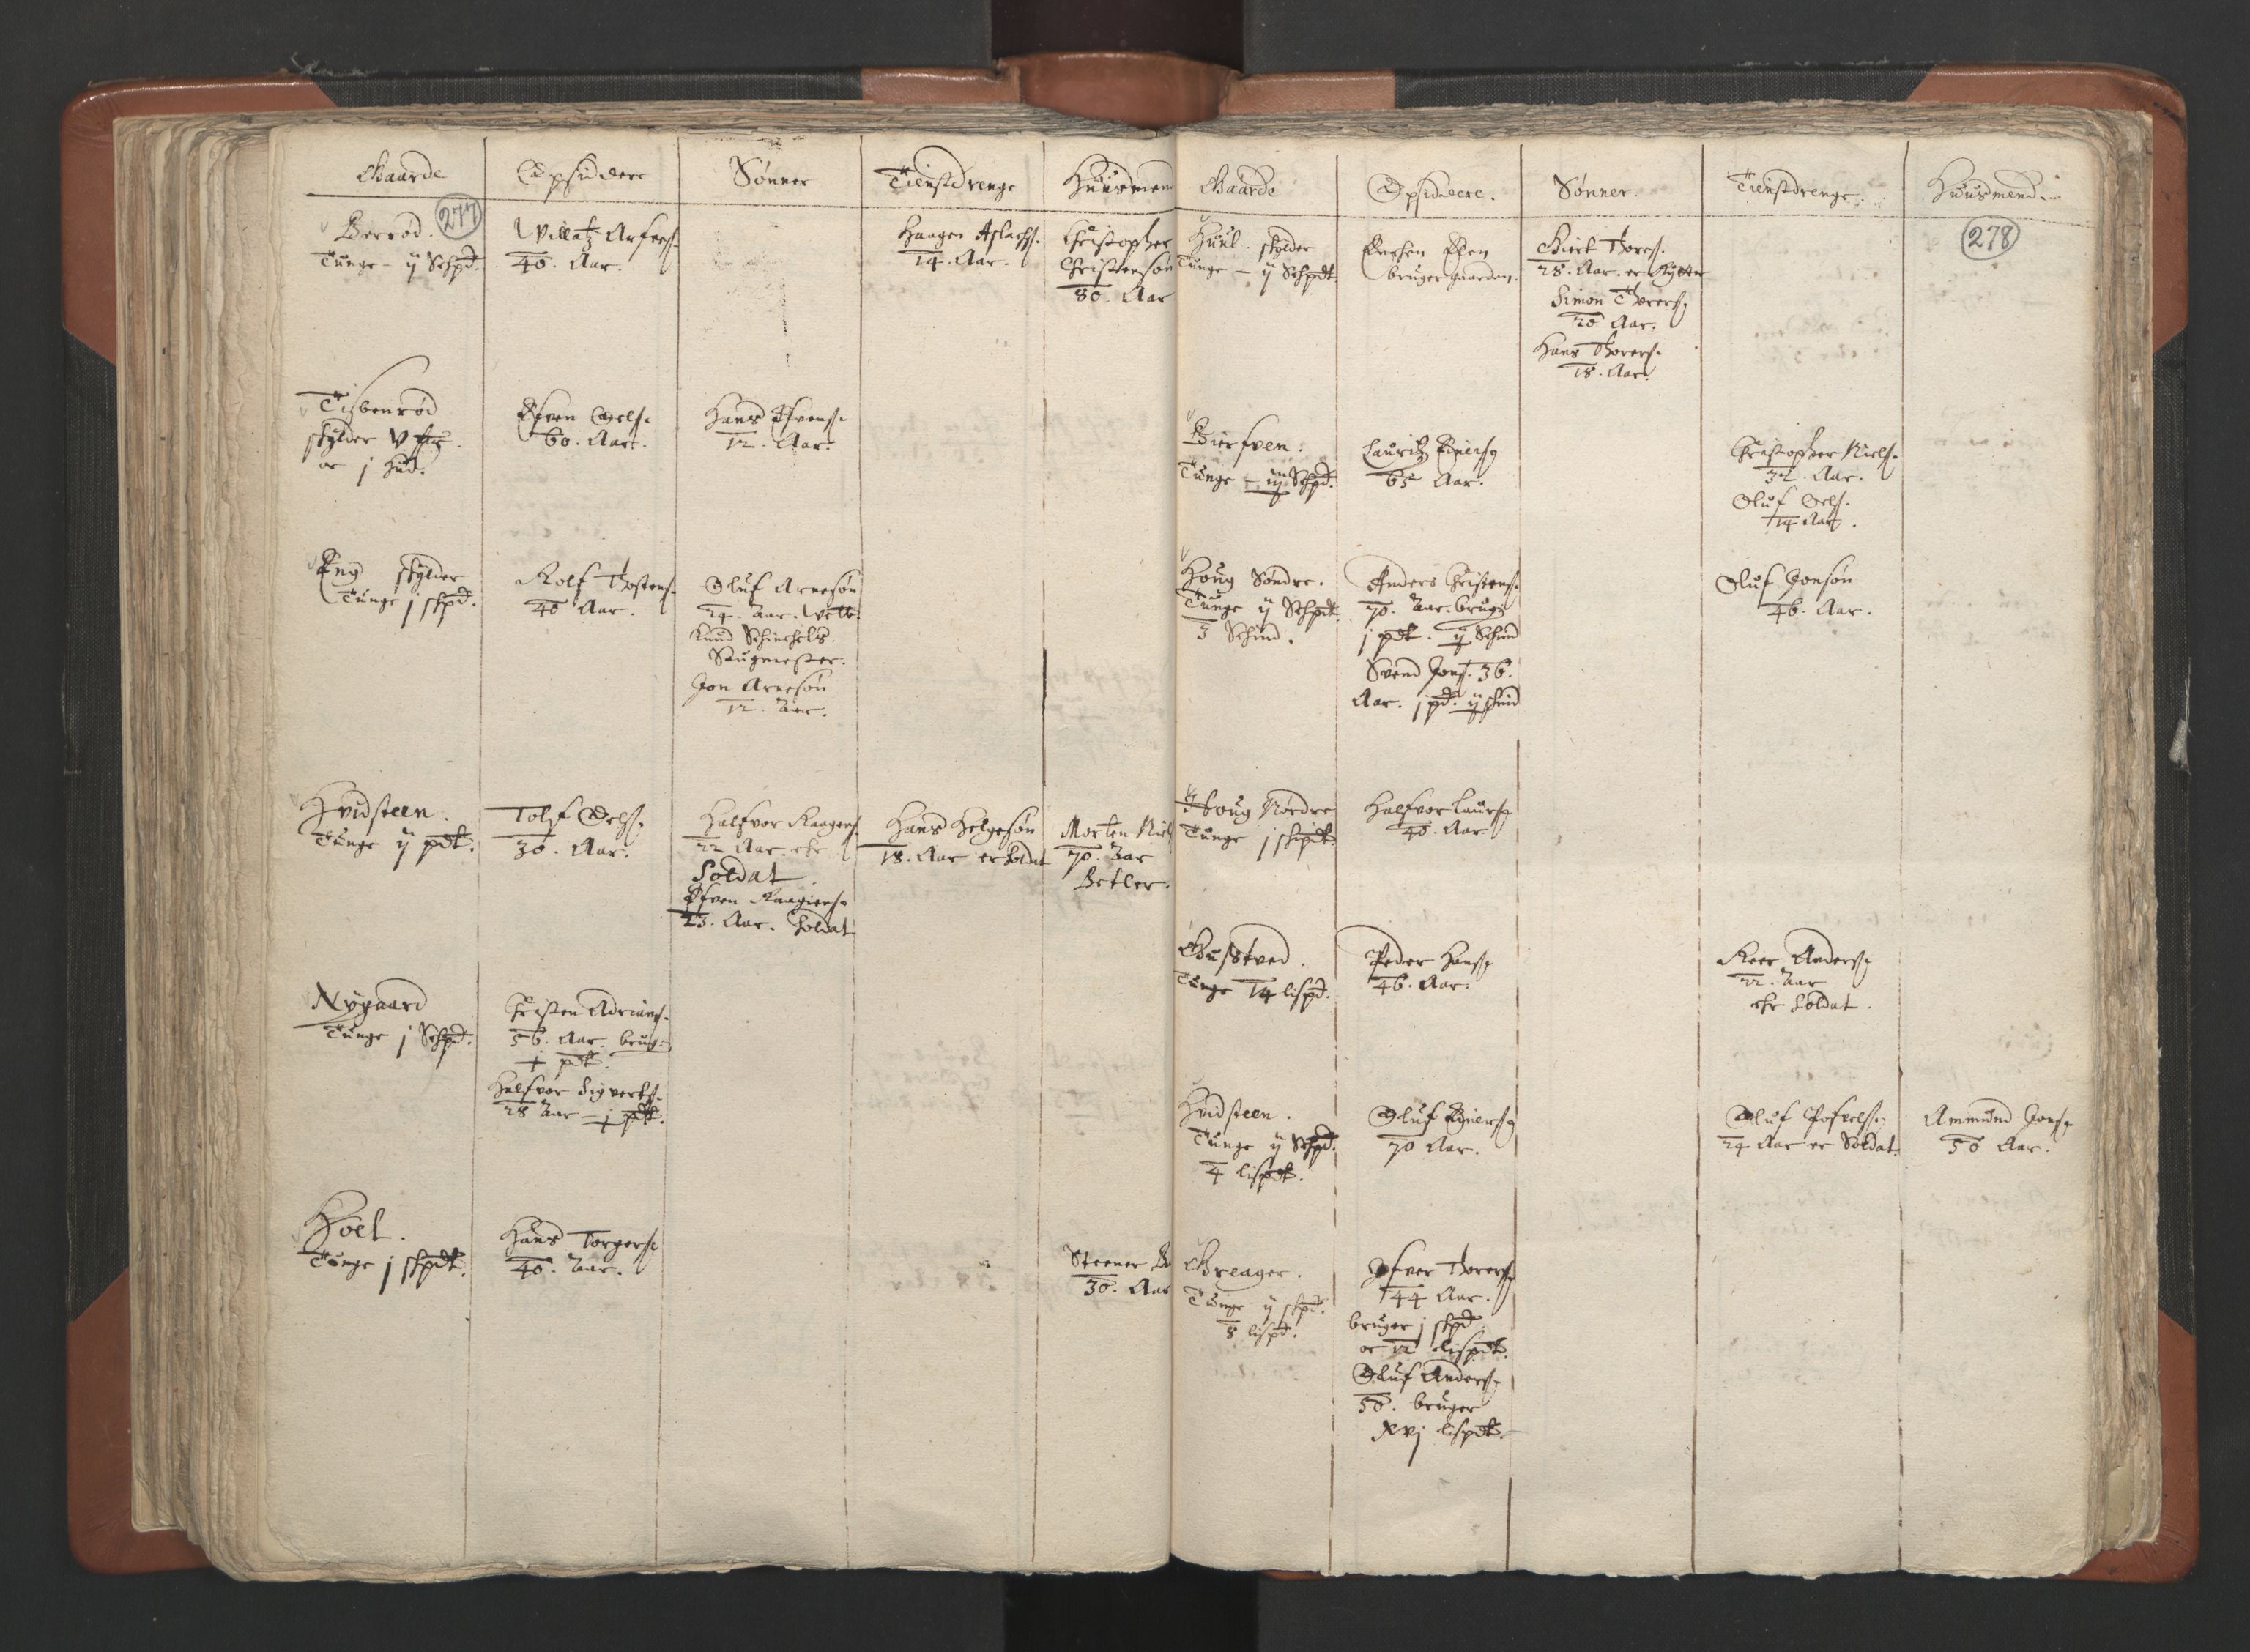 Gaarde
Opsiddere
Sønner
Tienistdrenge
Huusmend
277
Berrød.
Tunge - ij Schpd.
Villatz
40. Aar.
Haagen Aslachs.
14. Aar.
Christopher
Christensøn
80. Aar
Tisbenrød
schylder
oc j hud.
Efven Oels.
60. Aar.
Hans Efvens.
12. Aar.
Eng schylder
Tunge j schpd.
Rolf Thostens.
40 Aar.
Oluf Arnesøn
24. Aar.
Knud
Saugmester.
Jon Arnesøn
12. Aar.
Hvidsteen.
Tunge ij pdt.
Tolf Oels.
30. Aar.
Halfvor Raagers.
22 Aar. ehr
Soldat
Efven Raagiers.
23. Aar. Soldat
Hans Helgesøn
18. Aar er soldat
Morten Niels
70. Aar
Betler.
Nygaard
Tunge j Schpd.
Christen Adrians.
56. Aar. brug:
pdt.
Halfvor Sigverts.
28 Aar - pdt.
Hoel.
Tunge j schpdt.
Hans Torgers.
40. Aar.
Steener
30. Aar
Gaarde
Opsiddere.
Sønner.
Tienistdrenge.
Huusmend.
278
Huul. schylder
Tunge - ij Schpdt.
Enchen
bruger gaarden.
Giert Thores.
28. Aar. er Rytter
Simon Thorers.
20 Aar.
Hans Thorers.
18. Aar.
Bierfven.
Tunge - iij Schpd.
Lauritz Einers.
65 Aar.
Christopher Niels.
32. Aar.
Oluf Oels.
14 Aar.
Houg Søndre.
Tunge ij Schpdt
3 Schind.
Anders Christens.
70. Aar. brug:
j pdt. ij Schind
Svend Jons. 36.
Aar. j pd. ij schind
Oluf Jonsøn
46. Aar.
Houg Nørdre
Tunge j schipdt.
Halfvor Laurs.
40. Aar.
Gulstved.
Tunge 14 lispd.
Peder Hans.
46. Aar.
Roer Anders.
22. Aar
ehr Soldat.
Hvidsteen.
Tunge ij Schpd.
4 lispdt.
Oluf Einers.
70 Aar.
Oluf Pofvels.
24 Aar er Soldat.
Ammund Jons.
50 Aar.
Greager.
Tunge ij schpd.
8 lispd.
Ifver Thorers.
44 Aar.
bruger j schpd
oc 12 lispdt.
Oluf Anders.
50. bruger
xvj lispdt.